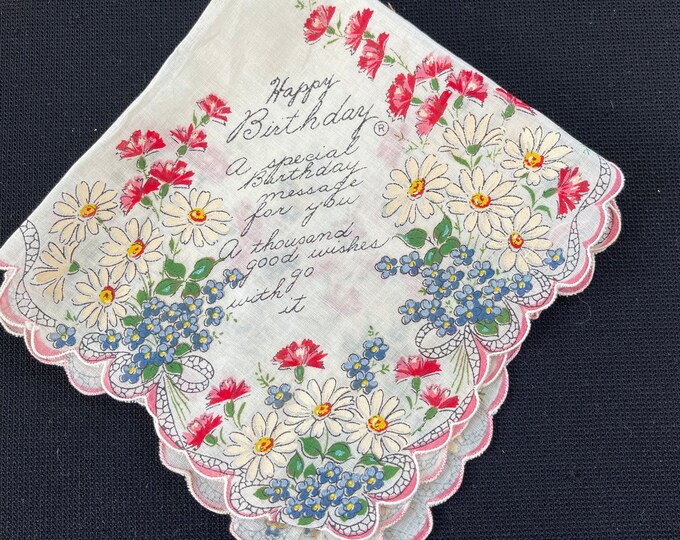 Happy
Birthday ®
A special
Birthday
message
for you
A thousand
good wishes
go
with
it